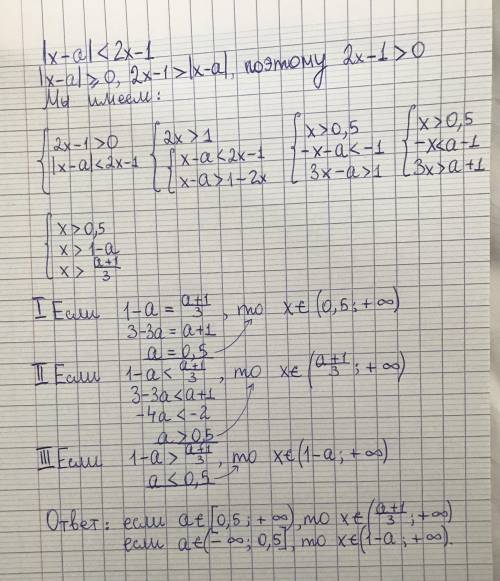 |x-a|<2x-1
|x-a|≥0, 2x-1>|x-a|, поэтому 2x-1>0
Мы имеем:
{2x-1>0 {2x>1 {x>0,5 {x>0,5
|x-a|<2x-1 {x-a<2x-1 -x-a<-1 -x<a-1
x-a>1-2x 3x-a>1 3x>a+1
{x>0,5
x>1-a
x>(a+1)/3
I Если 1-a=(a+1)/3, то x∈(0,5;+∞)
3-3a=a+1
a=0,5
II Если 1-a<(a+1)/3, то x∈((a+1)/3;+∞)
3-3a<a+1
-4a<-2
a>0,5
III Если 1-a>(a+1)/3, то x∈(1-a;+∞)
a<0,5
Ответ: если a∈[0,5;+∞), то x∈((a+1)/3;+∞)
если a∈(-∞;0,5], то x∈(1-a;+∞).